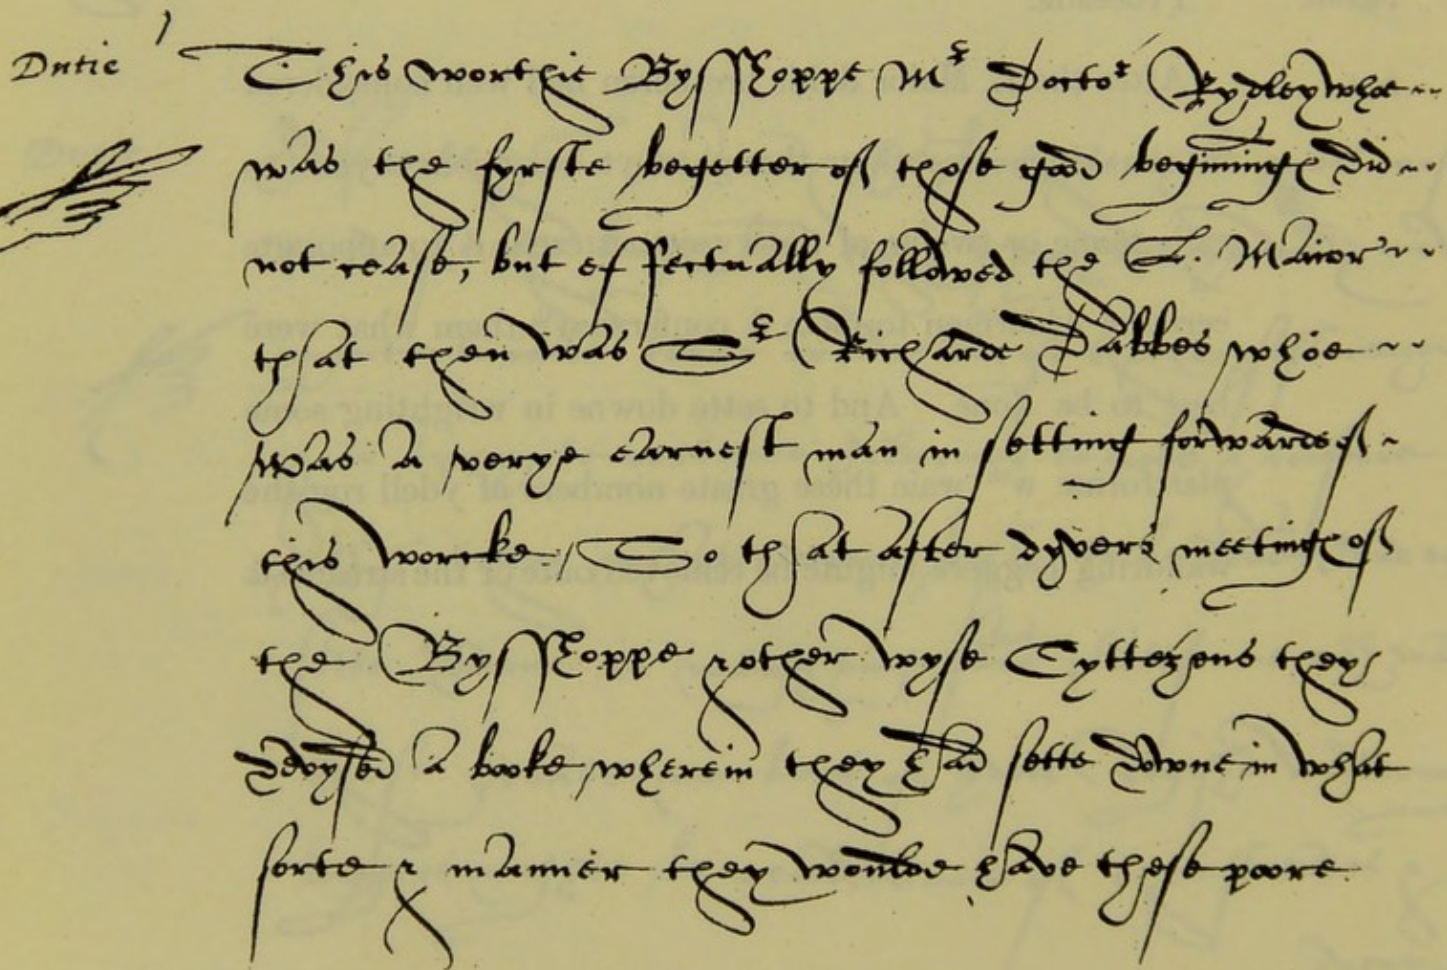 Dutie
This worthie Bysshoppe Mr Doctor Rydley whoe
was the fyrste begetter of those good beginninges did
not cease, but effectually followed the L. Maior
that then was Sr Richarde Dabbes whoe
was a verye earnest man in setting forwarde of
this worcke / So that after dyvers meetinges of
the Bysshoppe & other wyse Cyttezens they
devysed a booke wherein they had sette downe in what
sorte & manner they woulde have these poore